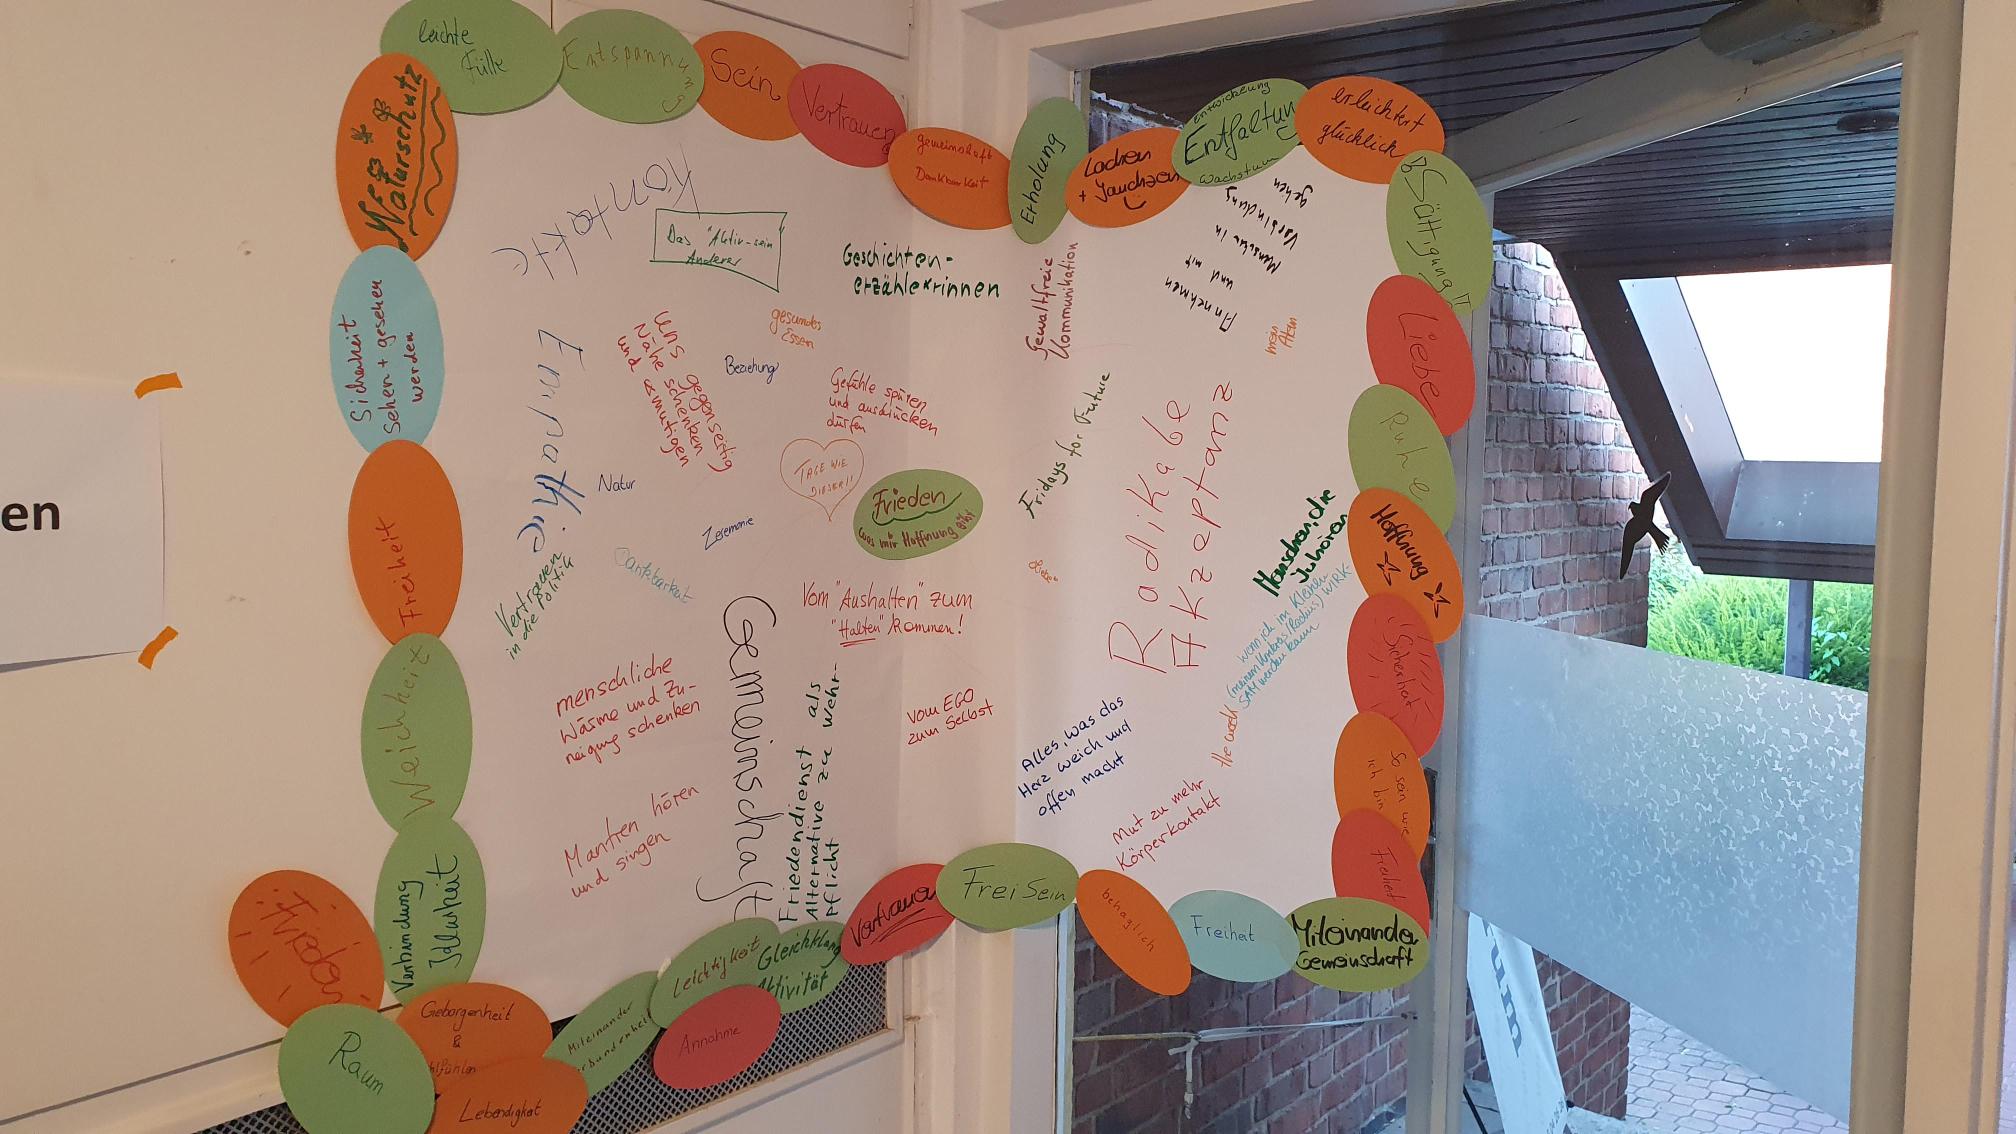 en
leichte
Fülle
Entspannung
Sein
Vertrauen
gemeinschaft
Dankbarkeit
Erholung
Lachen
+ Jauchzen
entwickeung
Entfaltung
Wachstum
erleichtert
glücklich
Sättigung!!
Liebe
Ruhe
Hoffnung
Sicherheit
So sein wie
ich bin
Freiheit
Miteinander
Gemeinschaft
Freiheit
behaglich
Frei Sein
Vertrauen
Gleichklang
Aktivität
Leichtigkeit
Annahme
Miteinander
Geborgenheit
&
Lebendigkeit
Raum
Frieden
Verbindung
Klarheit
Weichheit
Freiheit
Sicherheit
sehen + gesehen
werden
Naturschutz
Kontakte
Das "Aktiv-sein"
Anderer
Geschichten-
erzähler*innen
Gewaltfreie
Kommunikation
Annehmen
und mit
Menschen in
Verbindung
gehen
mein
Atem
gesundes
Essen
Beziehung
uns gegenseitig
Nähe schenken
und ermutigen
Empathie
Gefühle spüren
und ausdrücken
dürfen
TAGE WIE
DIESER!!
Natur
Zeremonie
Dankbarkeit
Vertrauen
in die Politik
Frieden
was mir Hoffnung gibt
Fridays for Future
Radikale
Akzeptanz
Menschen, die
zuhören
wenn ich im Kleinen
(meinem Umkreis/Radius) WIRK-
SAM werden kann
Vom "Aushalten" zum
"Halten" kommen!
menschliche
Wärme und Zu-
neigung schenken
Gemeinschaft
Friedendienst als
Alternative zu Wehr-
Pflicht
vom EGO
zum Selbst
Alles, was das
Herz weich und
offen macht
the work
Mut zu mehr
Körperkontakt
Mantren hören
und singen
um